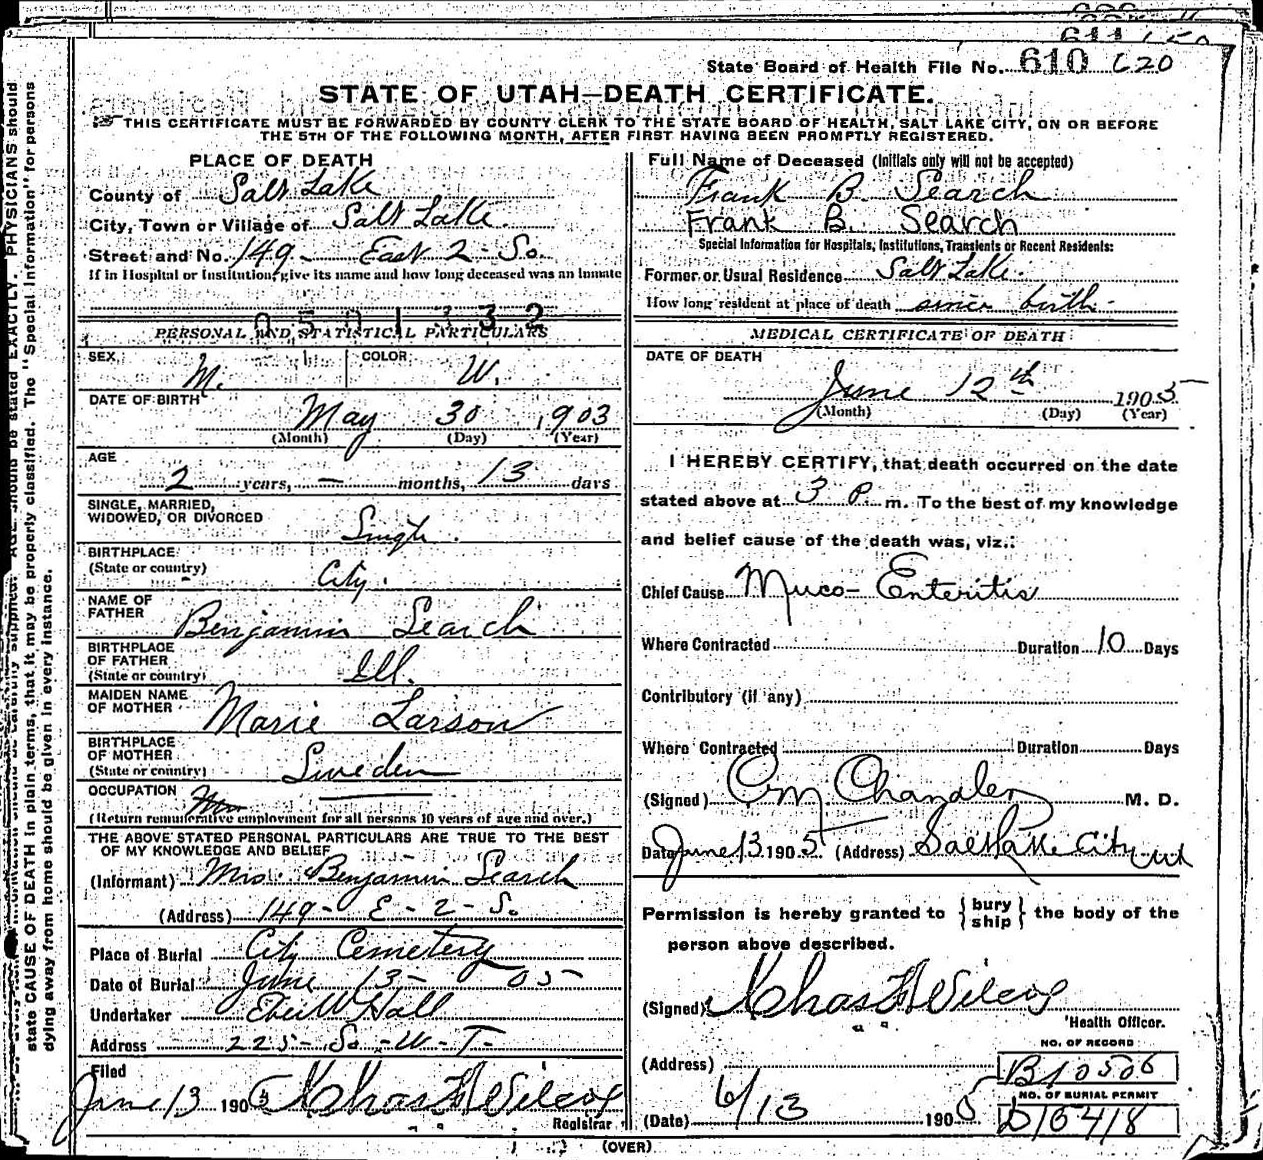 State Board of Health File No. 610 620
STATE OF UTAH—DEATH CERTIFICATE.
THIS CERTIFICATE MUST BE FORWARDED BY COUNTY CLERK TO THE STATE BOARD OF HEALTH, SALT LAKE CITY, ON OR BEFORE
THE 5TH OF THE FOLLOWING MONTH, AFTER FIRST HAVING BEEN PROMPTLY REGISTERED.
PLACE OF DEATH
County of Salt Lake
City, Town or Village of Salt Lake
Street and No. 149 - East 2 - So.
If in Hospital or Institution, give its name and how long deceased was an inmate
PERSONAL AND STATISTICAL PARTICULARS
SEX M. COLOR W.
DATE OF BIRTH May 30 1903
(Month) (Day) (Year)
AGE
2 years, — months, 13 days
SINGLE, MARRIED,
WIDOWED, OR DIVORCED Single.
BIRTHPLACE
(State or country) City.
NAME OF
FATHER Benjamin Search
BIRTHPLACE
OF FATHER
(State or country) Ill.
MAIDEN NAME
OF MOTHER Marie Larson
BIRTHPLACE
OF MOTHER
(State or country) Sweden
OCCUPATION
(Return remunerative employment for all persons 10 years of age and over.)
THE ABOVE STATED PERSONAL PARTICULARS ARE TRUE TO THE BEST
OF MY KNOWLEDGE AND BELIEF
(Informant) Mrs. Benjamin Search
(Address) 149 - E - 2 - So.
Place of Burial City Cemetery
Date of Burial June 13 - 05
Undertaker Eber W Hall
Address 225 - So - W - T -
Filed
June 13 1905 Chas F Wilcox
Registrar
Full Name of Deceased (Initials only will not be accepted)
Frank B. Search
Frank B. Search
Special Information for Hospitals, Institutions, Transients or Recent Residents:
Former or Usual Residence Salt Lake.
How long resident at place of death since birth -
MEDICAL CERTIFICATE OF DEATH
DATE OF DEATH
June 12th 1905
(Month) (Day) (Year)
I HEREBY CERTIFY, that death occurred on the date
stated above at 3 P. m. To the best of my knowledge
and belief cause of the death was, viz.:
Chief Cause Muco-Enteritis
Where Contracted Duration 10 Days
Contributory (if any)
Where Contracted Duration Days
(Signed) C.M. Chandler M. D.
Date June 13 1905 (Address) Salt Lake City Ut
Permission is hereby granted to { bury ship } the body of the
person above described.
(Signed) Chas F Wilcox
Health Officer.
NO. OF RECORD
(Address) B10506
NO. OF BURIAL PERMIT
(Date) 6/13 1905 D15418
(OVER)